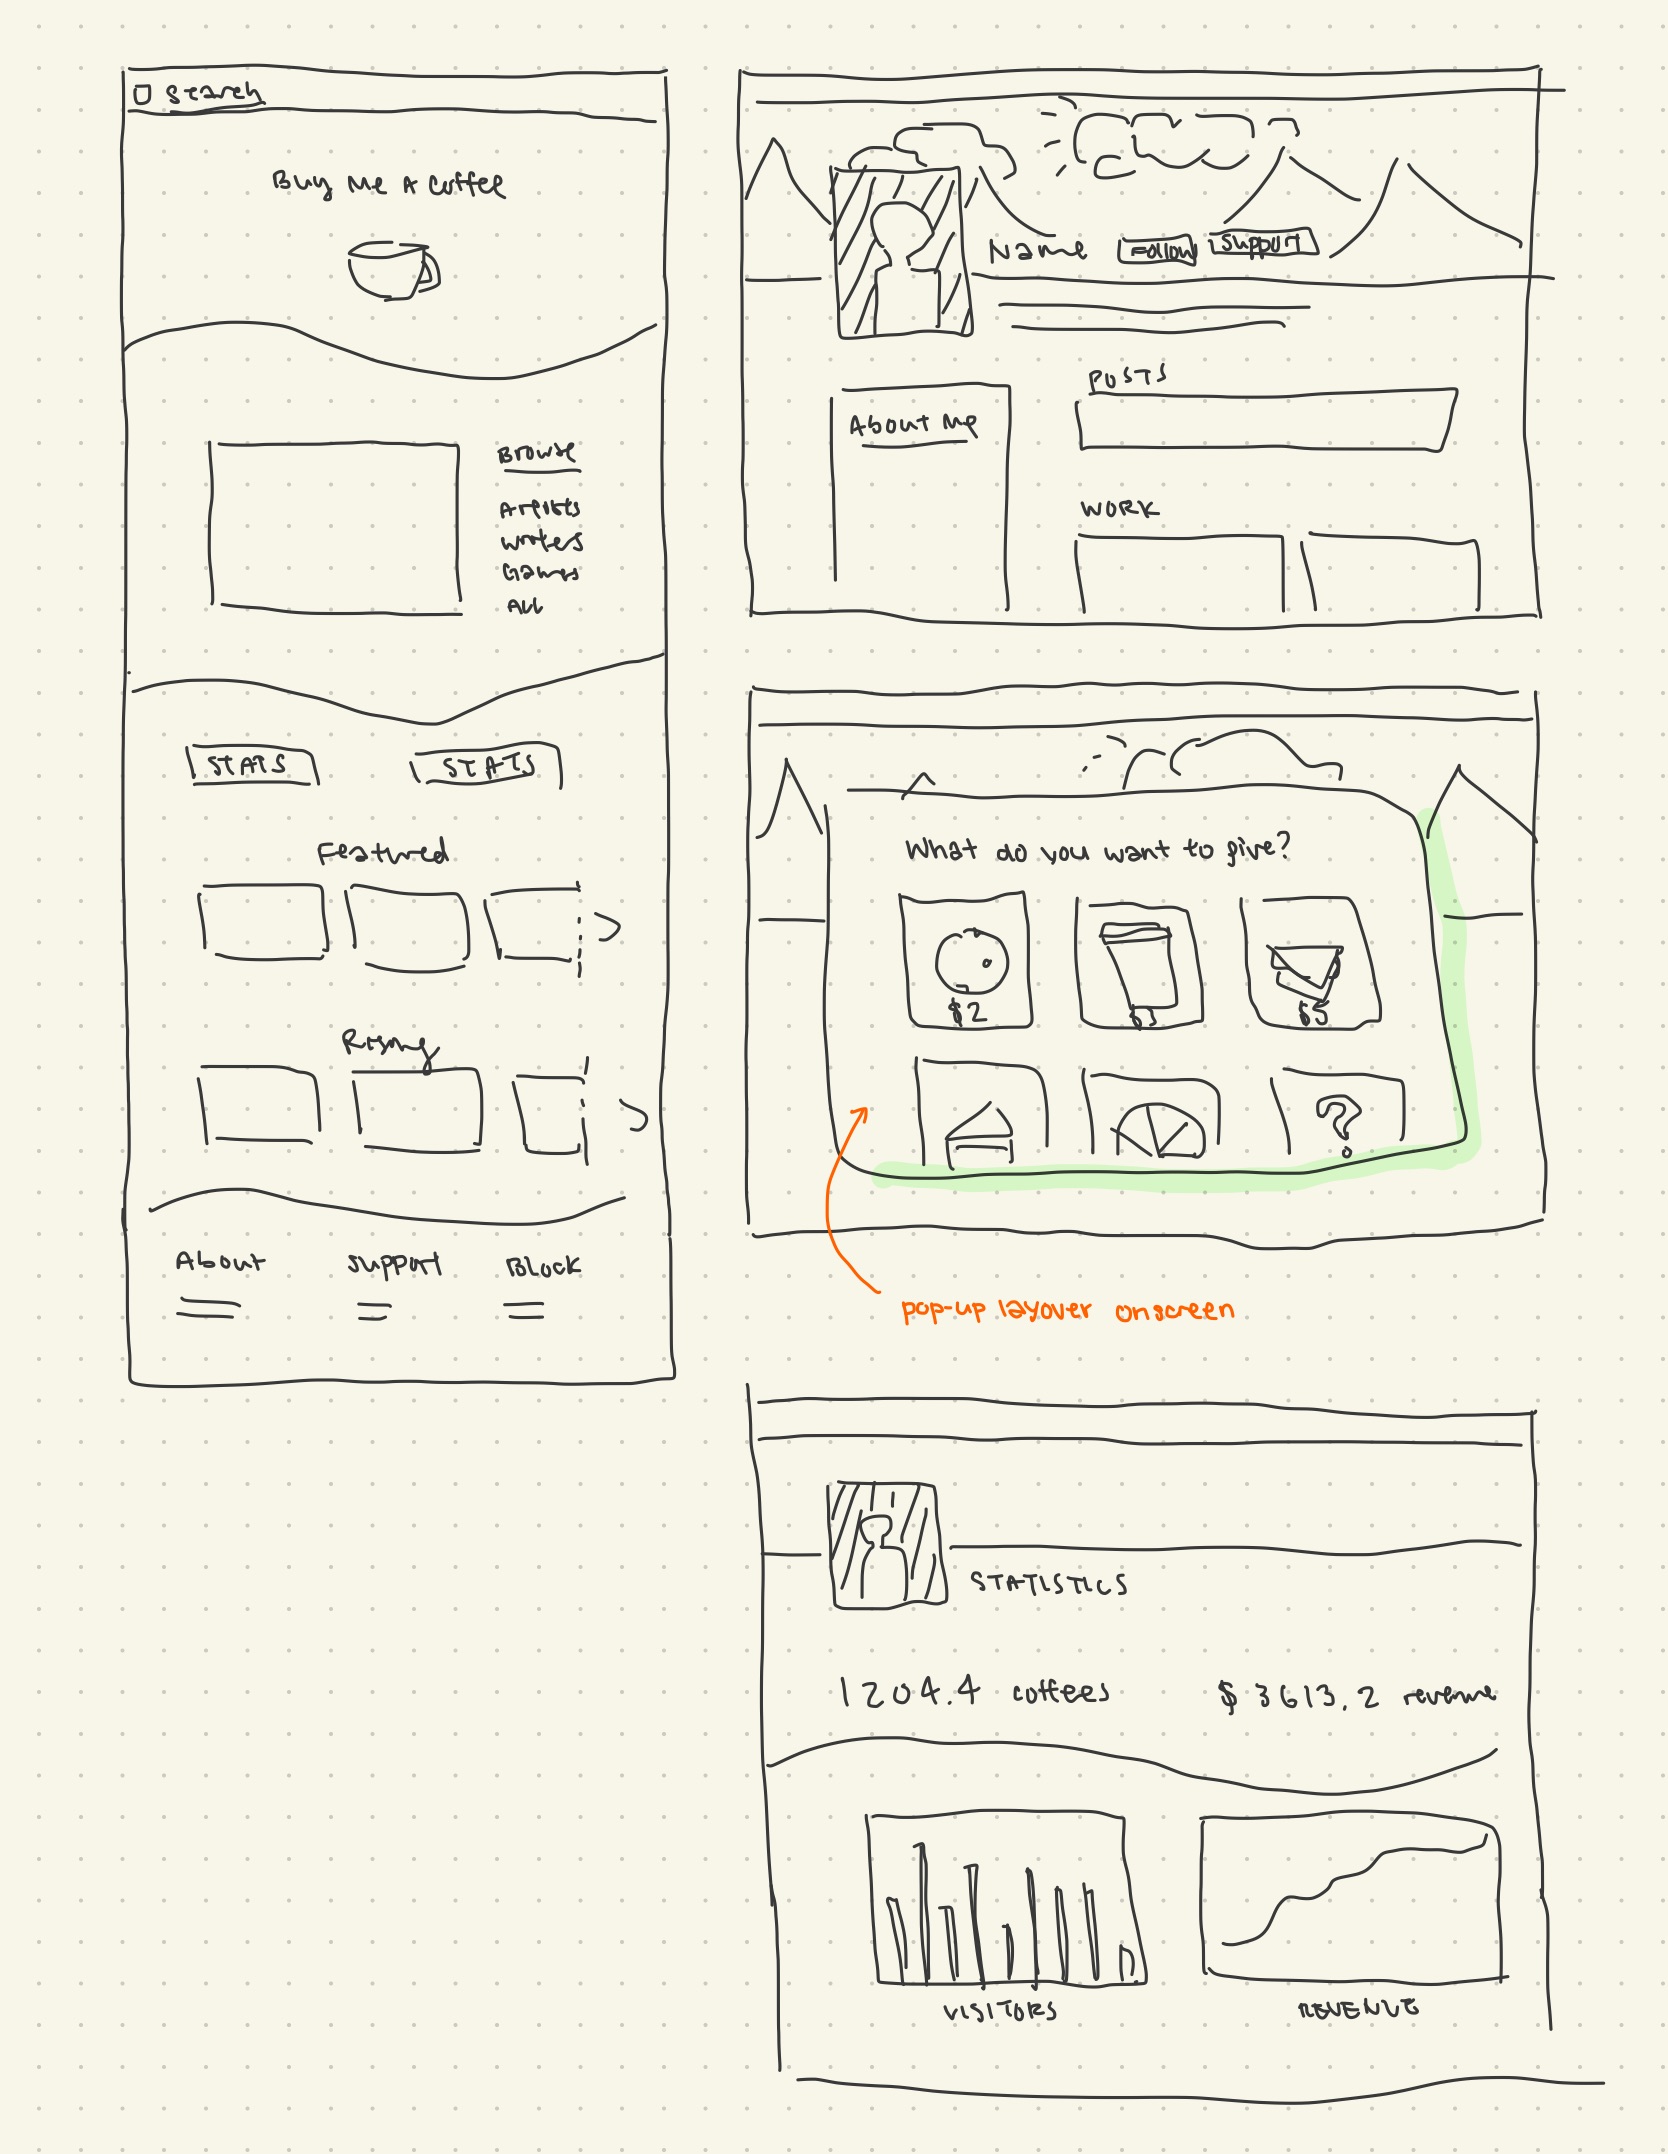 Search
Buy Me A Coffee
Browse
Artists
Writers
Games
All
STATS
STATS
Featured
Rising
About
Support
Block
Name
Follow
Support
About Me
POSTS
WORK
What do you want to give?
$2
$3
$5
?
pop-up layover onscreen
STATISTICS
1204.4 coffees
$3613.2 revenue
VISITORS
REVENUE